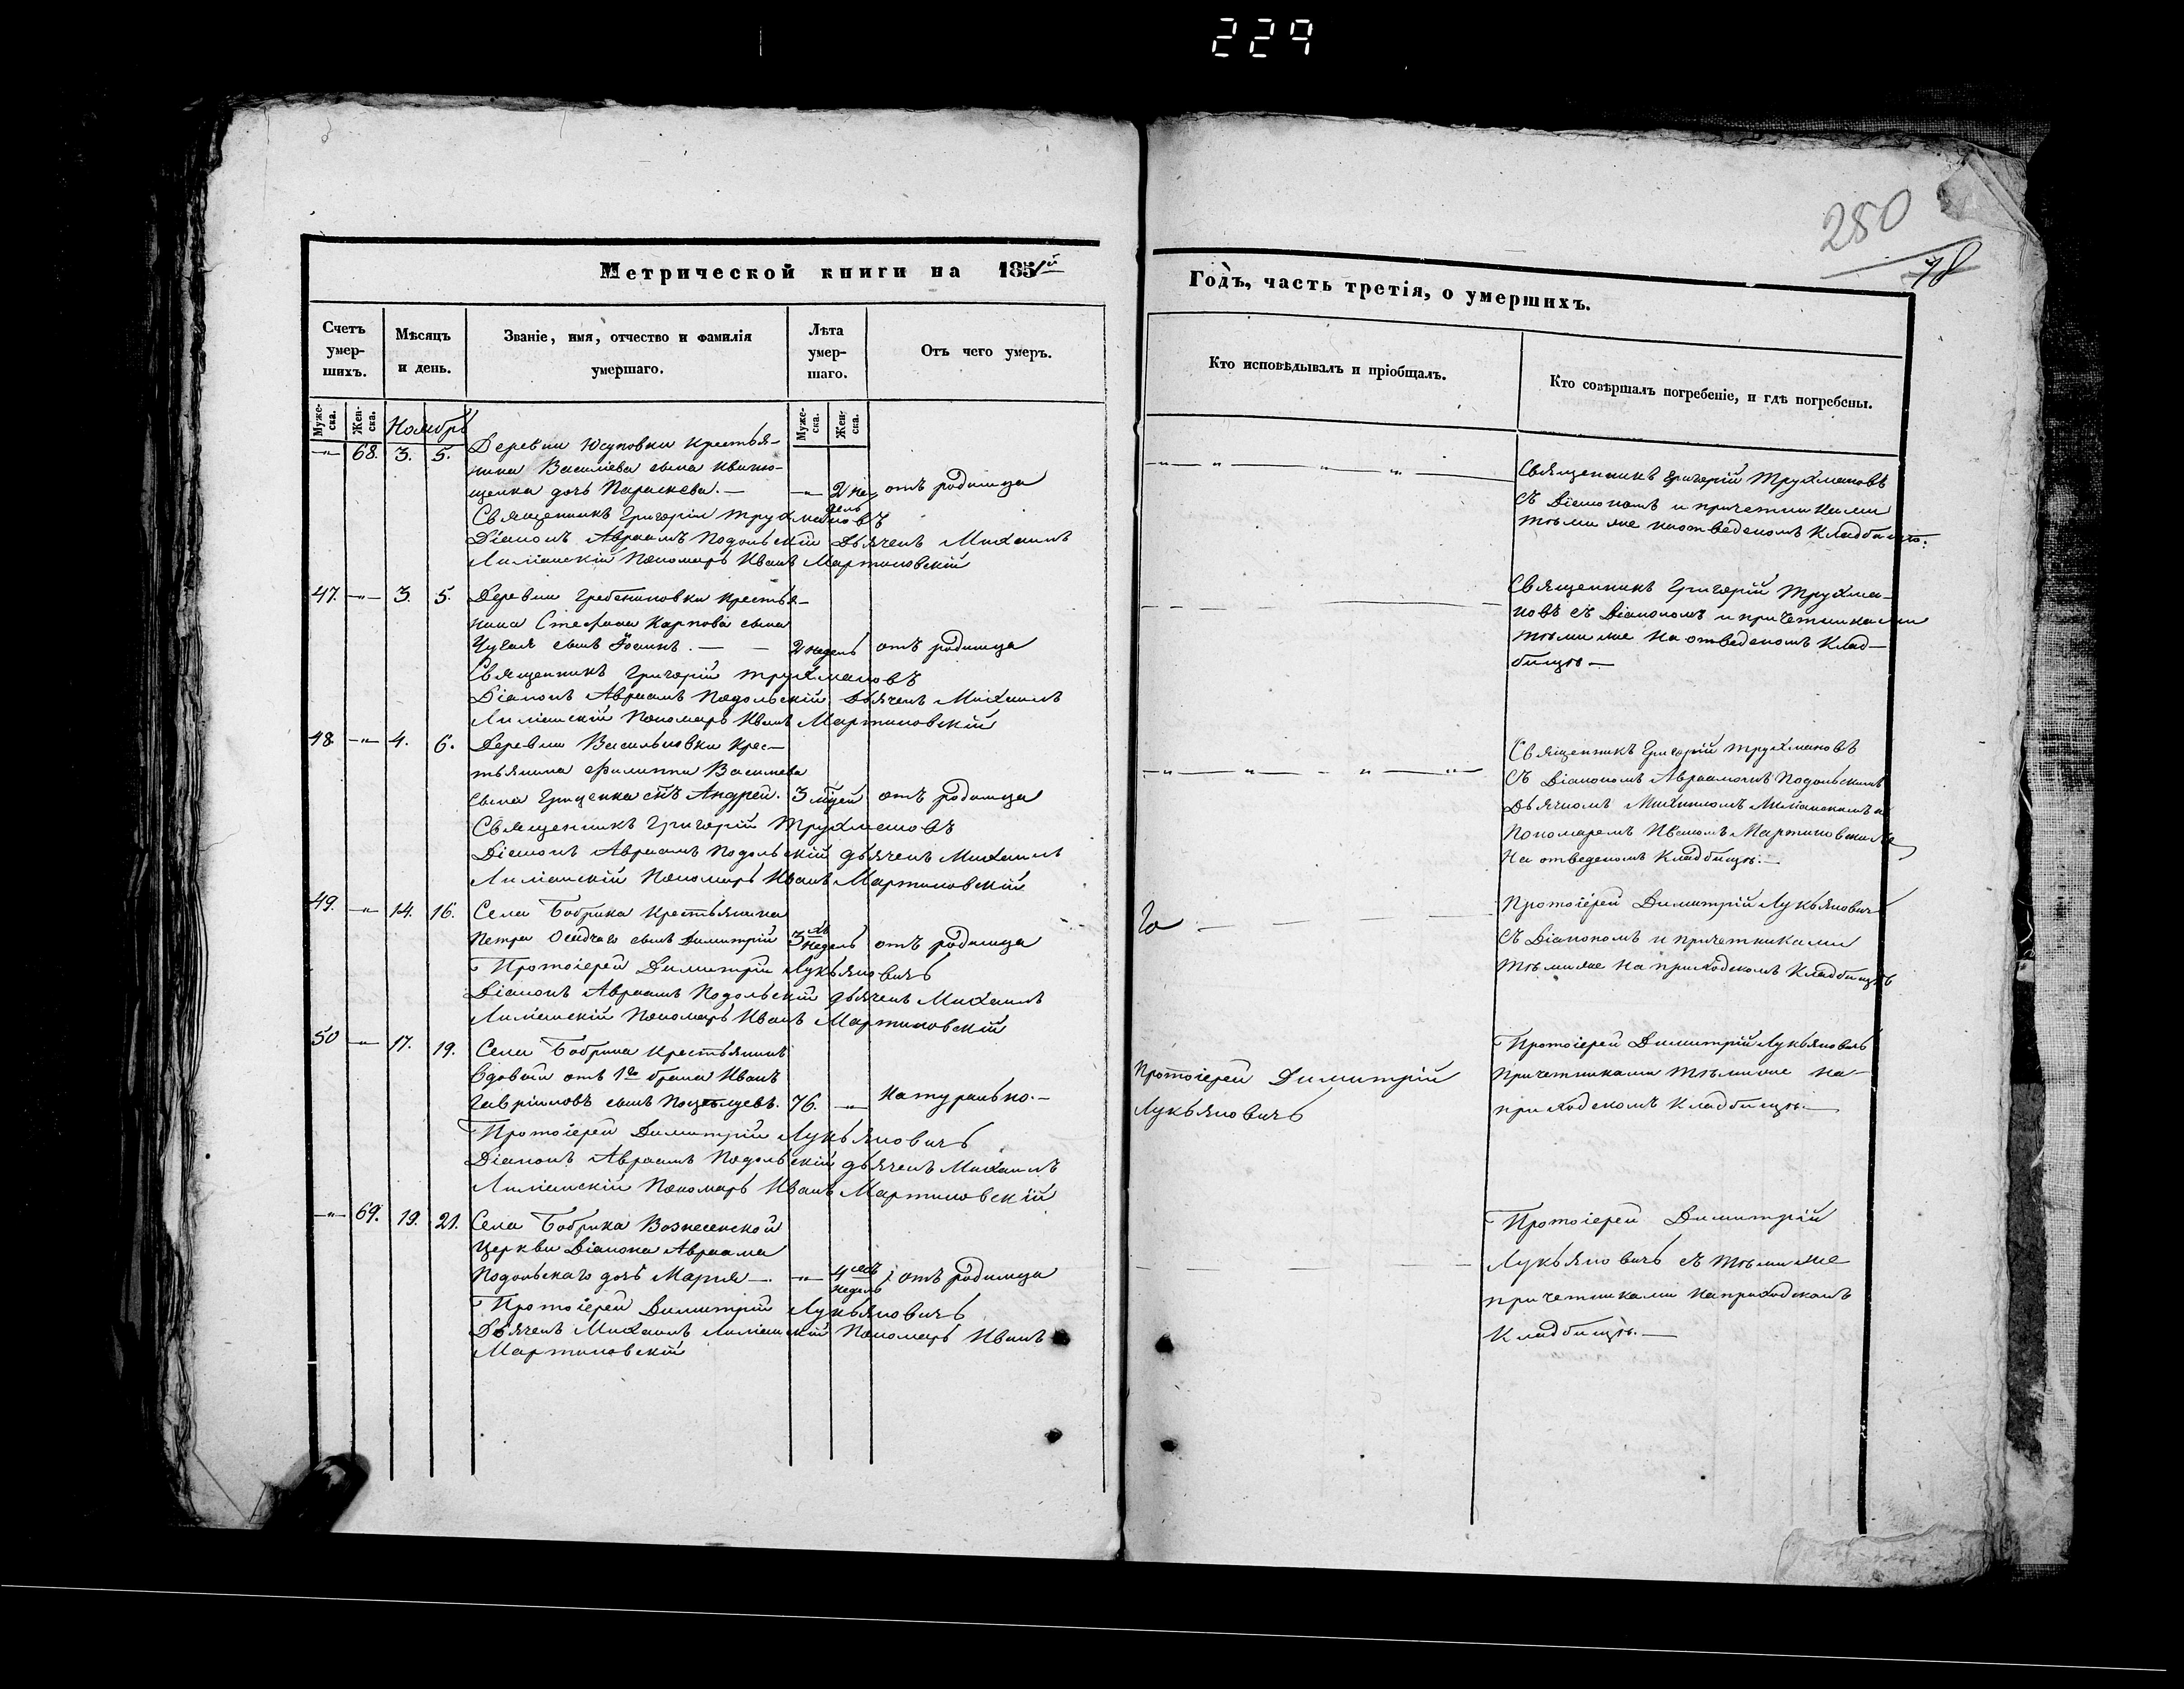 229
280
78
Метрической книги на 1851й
Годъ, часть третія, о умершихъ.
Счетъ умер-шихъ.
Мѣсяцъ и день.
Званіе, имя, отчество и фамилія
умершаго.
Лѣта умер-шаго.
Отъ чего умеръ.
Кто исповѣдывалъ и пріобщалъ.
Кто совѣршалъ погребеніе, и гдѣ погребены.
Муже-ска.
Жен-ска.
Муже-ска.
Жен-ска.
Ноябрь
-"- 68. 3. 5. Деревни Юсуповки крестья-
нина Василіева сына
дочь Параскева. — -"- 2 недель отъ родимца
Священникъ Григорій Трухмановъ
Діаконъ Авраамъ Подольскій Дьячекъ Михаилъ
Лиліанскій Пономарь Иванъ Мартиновскій
Священникъ Григорій Трухмановъ
съ Діакономъ и причетниками
тѣми же на отведеномъ кладбищѣ.
47. -"- 3. 5. Деревни Гребениковки крестья-
нина Стефана Карпова сына
Чугая сынъ Іоаннъ. — — 2 недель отъ родимца
Священникъ Григорій Трухмановъ
Діаконъ Авраамъ Подольскій Дьячекъ Михаилъ
Лиліанскій Пономарь Иванъ Мартиновскій
Священникъ Григорій Трухма-
новъ съ Діакономъ и причетниками
тѣми же на отведеномъ клад-
бищѣ —
48. -"- 4. 6. Деревни Васильевки крес-
тьянина Филиппа Василіева
сына Гриценка снъ Андрей. 3 мцей отъ родимца
Священникъ Григорій Трухмановъ
Діаконъ Авраамъ Подольскій дьячекъ Михаилъ
Лиліанскій Пономарь Иванъ Мартиновскій
Священникъ Григорій Трухмановъ
съ Діакономъ Авраамомъ Подольскимъ
Дьячкомъ Михаиломъ Лиліанскимъ и
Пономаремъ Иваномъ Мартиновскимъ
на отведеномъ кладбищѣ. —
49. -"- 14. 16. Села Бобрика крестьянина
Петра Осадчаго сынъ Димитрій 3хъ недель отъ родимца
Протоіерей Димитрій Лукьяновичъ
Діаконъ Авраамъ Подольскій дьячекъ Михаилъ
Лиліанскій Пономарь Иванъ Мартиновскій
Протоіерей Димитрій Лукьяновичъ
съ Діакономъ и причетниками
тѣми же на приходскомъ кладбищѣ
50 -"- 17. 19. Села Бобрика крестьянинъ
вдовый отъ 1го брака Иванъ
Гавріиловъ сынъ 76. -"- Натурально. —
Протоіерей Димитрій Лукьяновичъ
Діаконъ Авраамъ Подольскій дьячекъ Михаилъ
Лиліанскій Пономарь Иванъ Мартиновскій
Протоіерей Димитрій
Лукьяновичъ
Протоіерей Димитрій Лукьяновичъ
причетниками тѣми же на
приходскомъ кладбищѣ. —
-"- 69. 19. 21. Села Бобрика Вознесенской
церкви Діакона Авраама
Подольскаго дочь Марія —. -"- 4 недель отъ родимца
Протоіерей Димитрій Лукьяновичъ
Дьячекъ Михаилъ Лиліанскій Пономарь Иванъ
Мартиновскій
Протоіерей Димитрій
Лукьяновичъ съ тѣми же
причетниками на приходскомъ
кладбищѣ. —